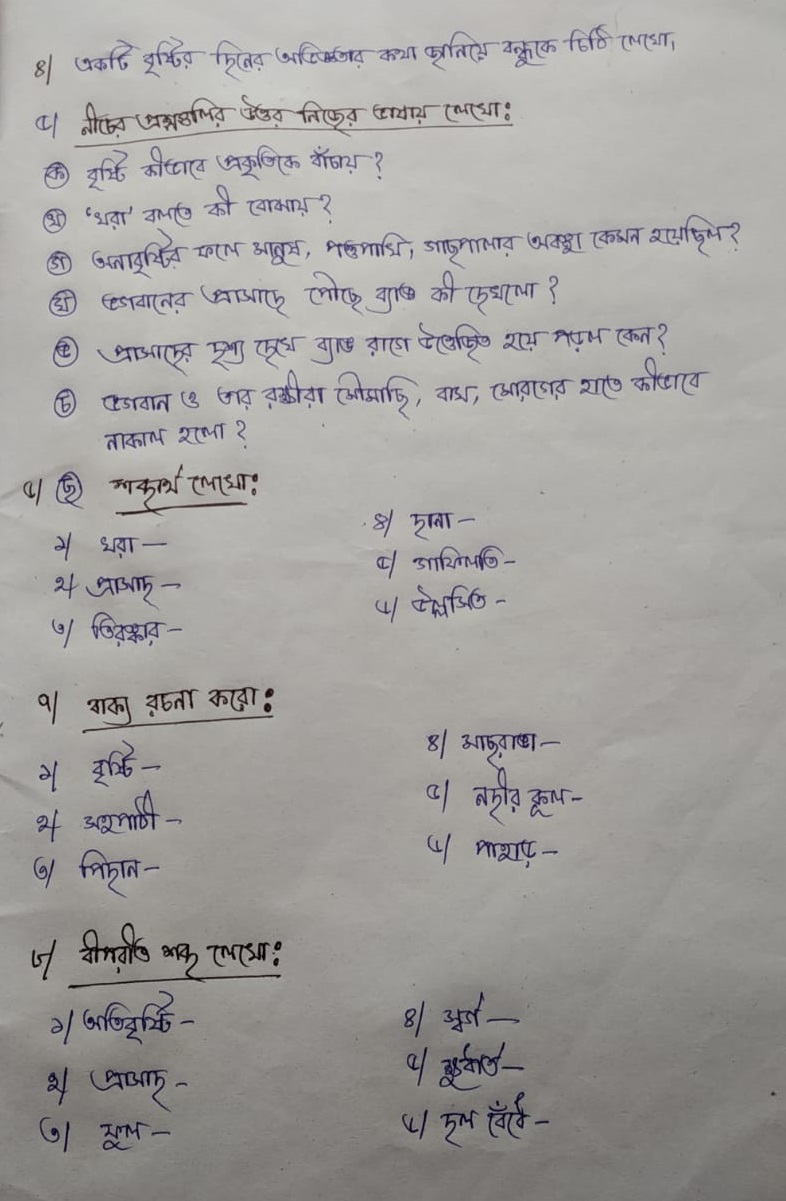 ৪/ একটি বৃষ্টির দিনের অভিজ্ঞতার কথা জানিয়ে বন্ধুকে চিঠি লেখো,
৫/ নীচের প্রশ্নগুলির উত্তর নিজের ভাষায় লেখো:
ক বৃষ্টি কীভাবে প্রকৃতিকে বাঁচায়?
খ 'খরা' বলতে কী বোঝায়?
গ অনাবৃষ্টির ফলে মানুষ, পশুপাখি, গাছপালার অবস্থা কেমন হয়েছিল?
ঘ ভগবানের প্রাসাদে পৌঁছে ব্যাঙ কী দেখলো?
ঙ প্রাসাদের দৃশ্য দেখে ব্যাঙ রাগে উত্তেজিত হয়ে পড়ল কেন?
চ ভগবান ও তার রক্ষীরা মৌমাছি, বাঘ, মোরগের হাতে কীভাবে
নাকাল হলো?
৬/ শব্দার্থ লেখো:
১/ খরা —
২/ প্রাসাদ —
৩/ তিরস্কার —
৪/ হানা —
৫/ গাফিলতি —
৬/ উল্লসিত —
৭/ বাক্য রচনা করো:
১/ বৃষ্টি —
২/ সহপাঠী —
৩/ পিছান —
৪/ মাছরাঙা —
৫/ নদীর কূল —
৬/ পাহাড় —
৮/ বীপরীত শব্দ লেখো:
১/ অতিবৃষ্টি —
২/ প্রাসাদ —
৩/ মূল —
৪/ স্বর্গ —
৫/ ক্ষুধার্ত —
৬/ দল বেঁধে —